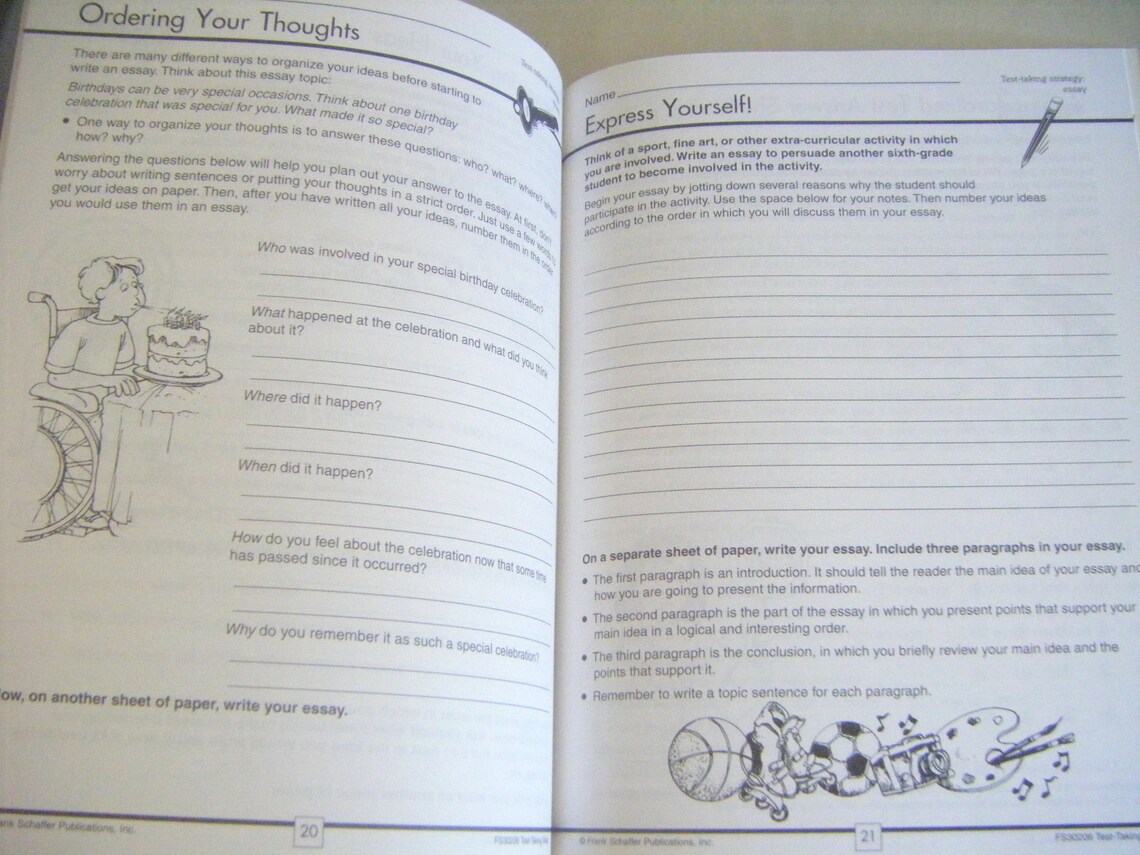 Ordering Your Thoughts
Test-taking
There are many different ways to organize your ideas before starting to
write an essay. Think about this essay topic:
Birthdays can be very special occasions. Think about one birthday
celebration that was special for you. What made it so special?
• One way to organize your thoughts is to answer these questions: who? what? where? when?
how? why?
Answering the questions below will help you plan out your answer to the essay. At first, don't
worry about writing sentences or putting your thoughts in a strict order. Just use a few words to
get your ideas on paper. Then, after you have written all your ideas, number them in the order
you would use them in an essay.
Who was involved in your special birthday celebration?
What happened at the celebration and what did you think
about it?
Where did it happen?
When did it happen?
How do you feel about the celebration now that some time
has passed since it occurred?
Why do you remember it as such a special celebration?
ow, on another sheet of paper, write your essay.
ank Schaffer Publications, Inc.
20
Name
Test-taking strategy:
essay
Express Yourself!
Think of a sport, fine art, or other extra-curricular activity in which
you are involved. Write an essay to persuade another sixth-grade
student to become involved in the activity.
Begin your essay by jotting down several reasons why the student should
participate in the activity. Use the space below for your notes. Then number your ideas
according to the order in which you will discuss them in your essay.
On a separate sheet of paper, write your essay. Include three paragraphs in your essay.
• The first paragraph is an introduction. It should tell the reader the main idea of your essay and
how you are going to present the information.
• The second paragraph is the part of the essay in which you present points that support your
main idea in a logical and interesting order.
• The third paragraph is the conclusion, in which you briefly review your main idea and the
points that support it.
• Remember to write a topic sentence for each paragraph.
© Frank Schaffer Publications, Inc.
21
FS30206 Test-Taking